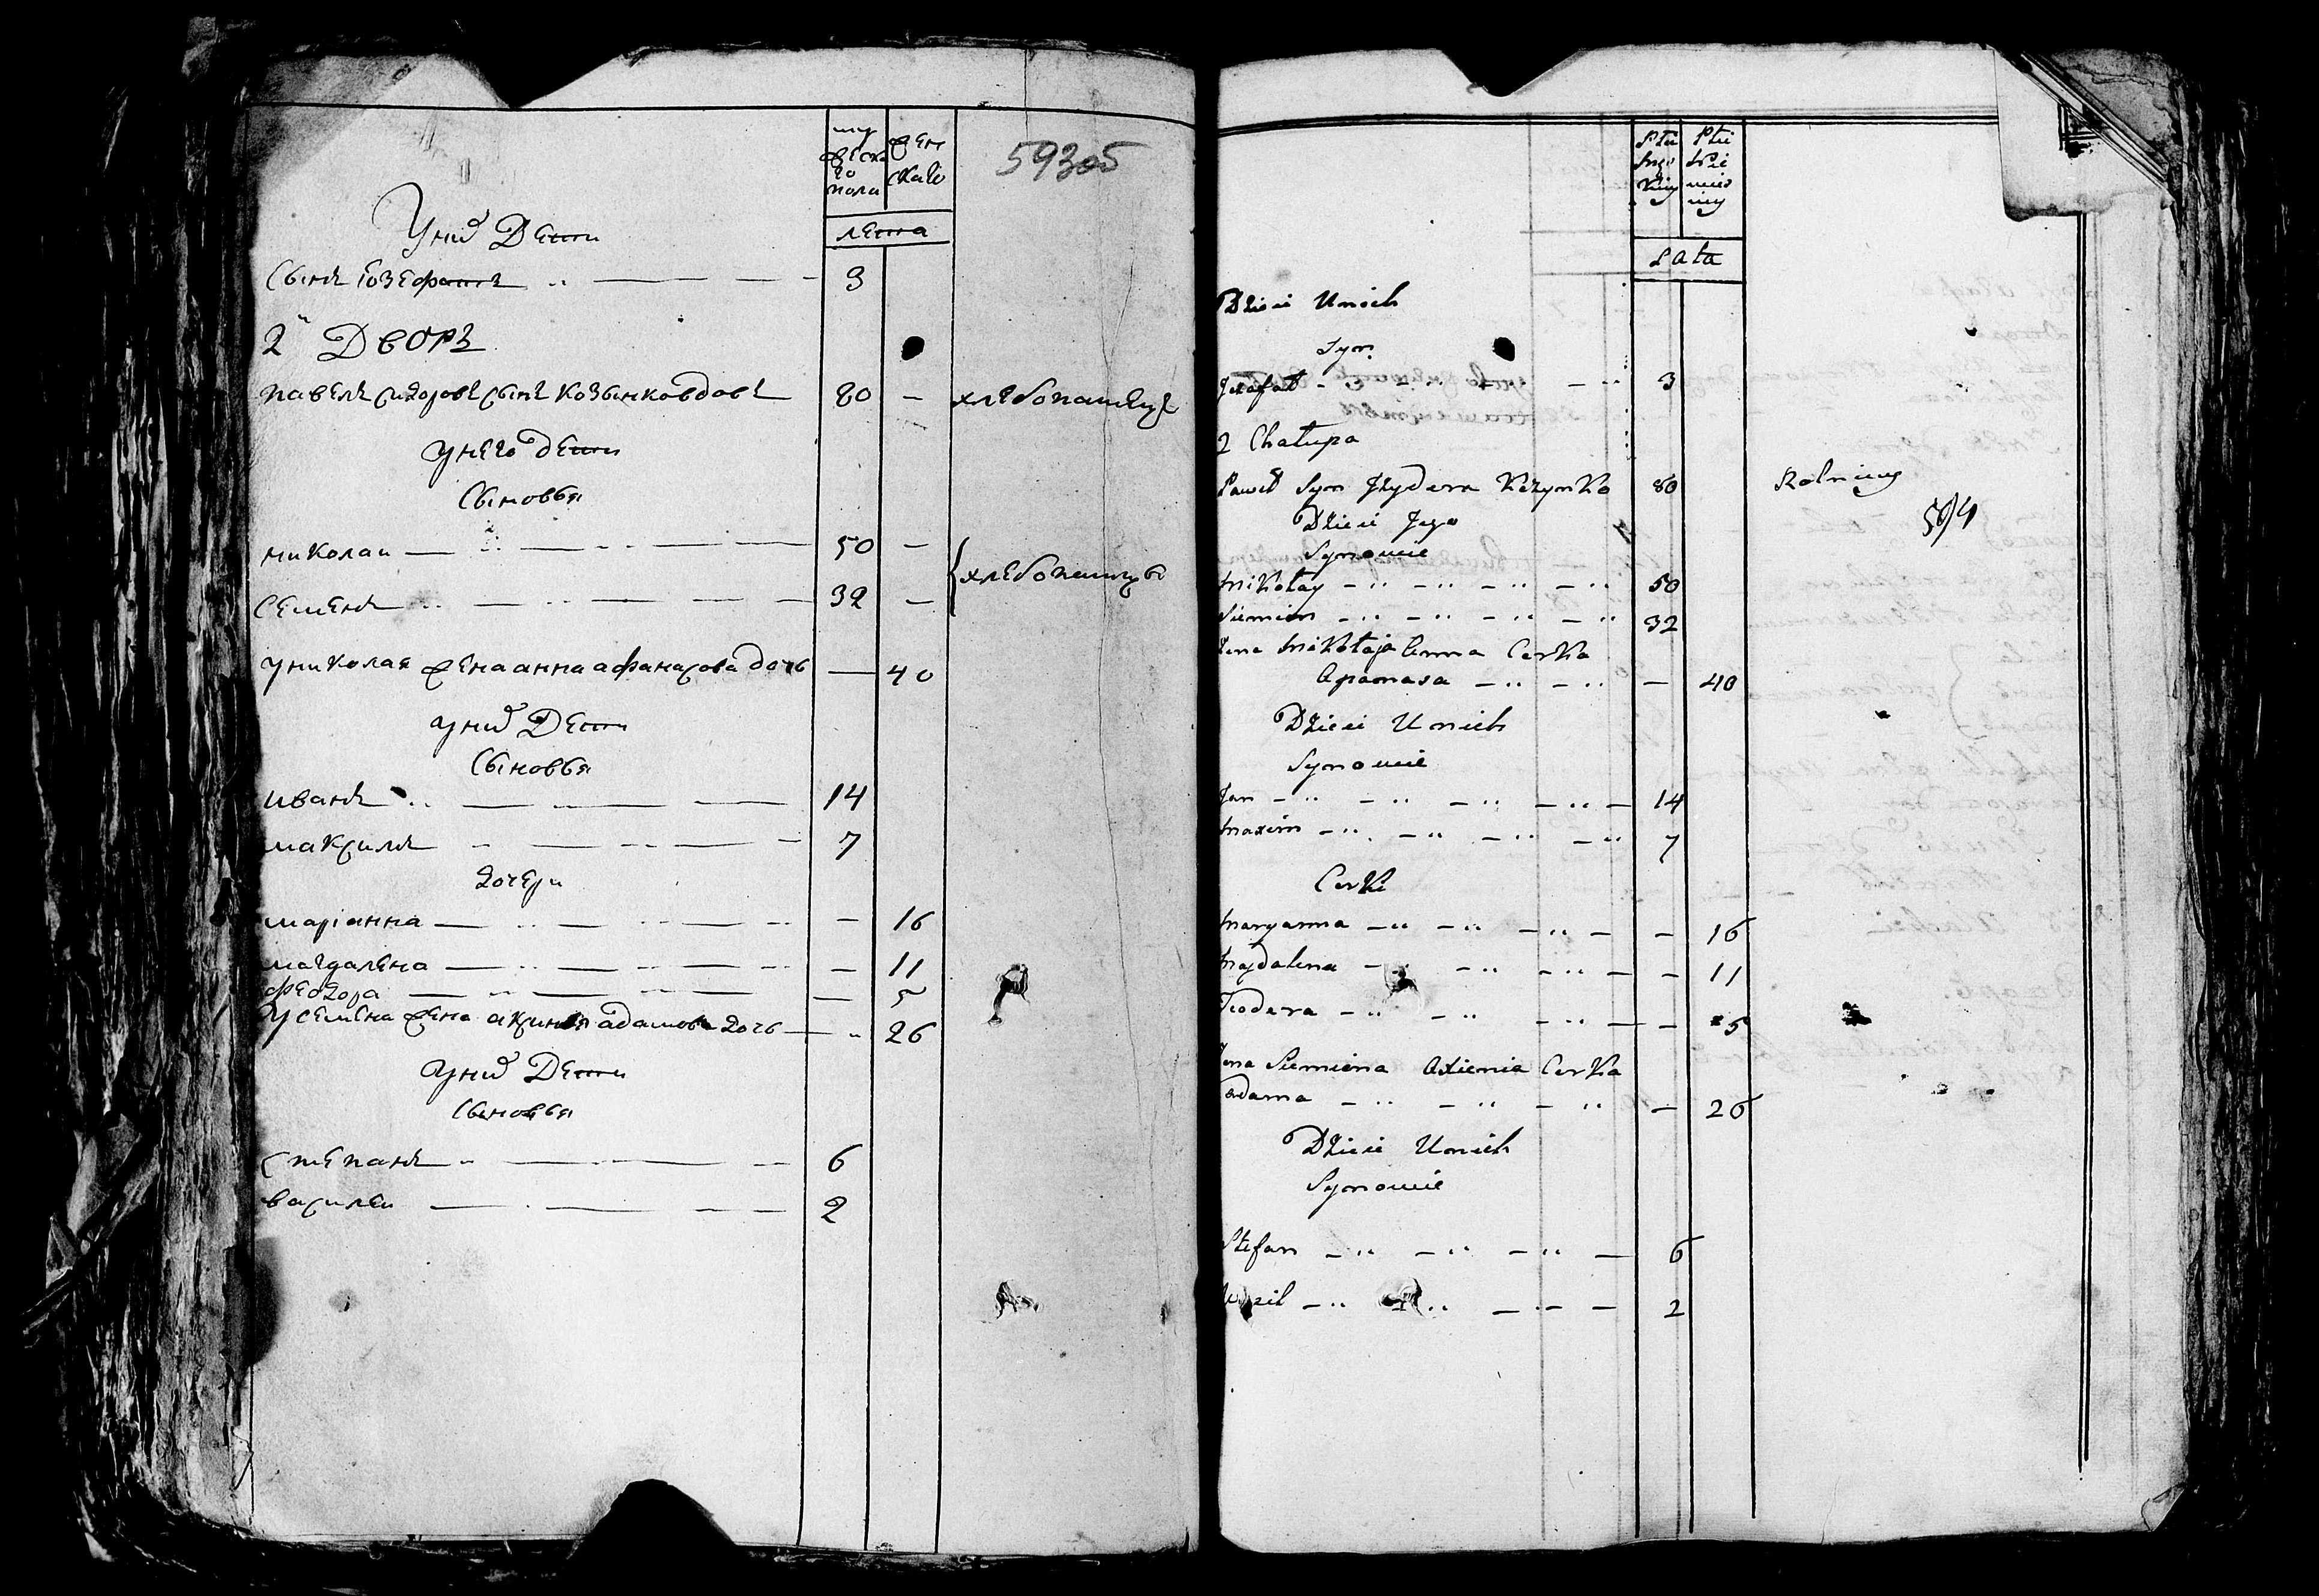 муж
ескаго
пола
жен
скаго
593об
лета
У них Дети
Сынъ Іозефатъ 3
2й Дворъ
павелъ сидоровъ сынъ козынковдовъ 80 — хлебопашецъ
у него дети
Сыновья
николаи 50 —
хлебопашцы
Семенъ 32 —
у николая жена анна афанасова дочь — 40
у них Дети
Сыновья
иванъ 14
максимъ 7
дочери
маріанна — 16
магдалена — 11
феодора — 5
у семена жена аксинья адамова дочь — 26
у них Дети
Сыновья
степанъ 6
василеи 2
Płci
Płci
Lata
Dzieci Unich
Syn
Jozafat 3
2 Chałupa
Paweł Syn Jzydora Kozynko 80 Rolniczy
Dzieci Jego
594
Synowie
Mikołay 50
Siemion 32
Zona Mikołaja Anna Corka
Apanasa — 40
Dzieci Unich
Synowie
Jan 14
Maxim 7
Corki
Maryanna — 16
Magdalena — 11
Teodora — 5
Zona Siemiona Axienia Corka
adama — 26
Dzieci Unich
Synowie
Stefan 6
Wasil 2